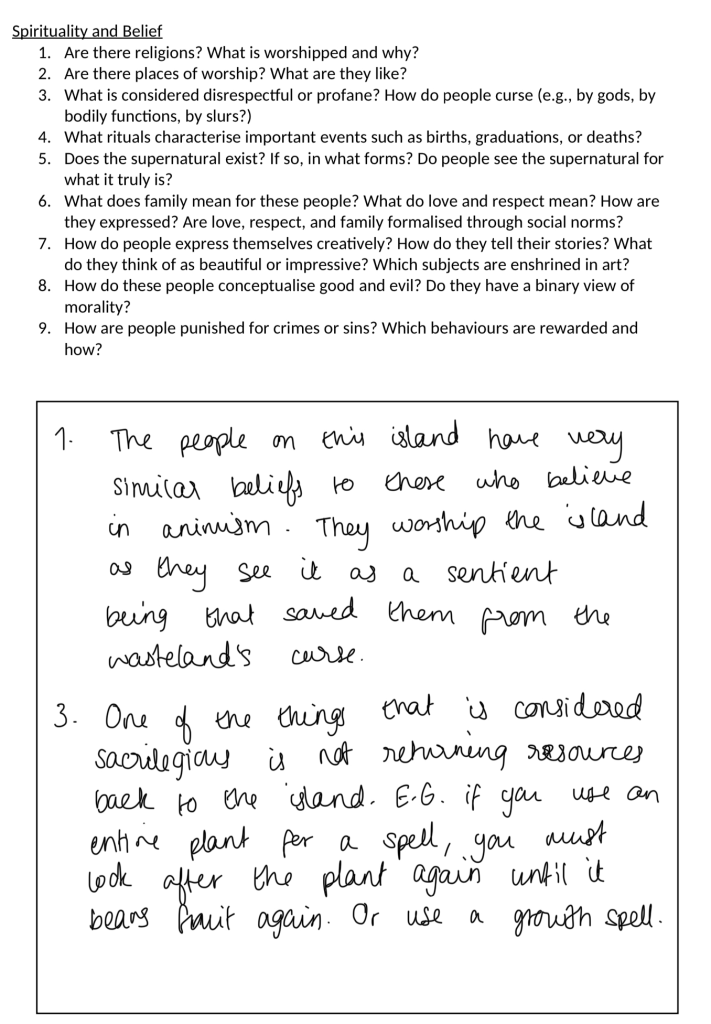 Spirituality and Belief
1. Are there religions? What is worshipped and why?
2. Are there places of worship? What are they like?
3. What is considered disrespectful or profane? How do people curse (e.g., by gods, by
bodily functions, by slurs?)
4. What rituals characterise important events such as births, graduations, or deaths?
5. Does the supernatural exist? If so, in what forms? Do people see the supernatural for
what it truly is?
6. What does family mean for these people? What do love and respect mean? How are
they expressed? Are love, respect, and family formalised through social norms?
7. How do people express themselves creatively? How do they tell their stories? What
do they think of as beautiful or impressive? Which subjects are enshrined in art?
8. How do these people conceptualise good and evil? Do they have a binary view of
morality?
9. How are people punished for crimes or sins? Which behaviours are rewarded and
how?
1. The people on this island have very
similar beliefs to those who believe
in animism. They worship the island
as they see it as a sentient
being that saved them from the
wasteland's curse.
3. One of the things that is considered
sacrilegious is not returning resources
back to the island. E.G. if you use an
entire plant for a spell, you must
look after the plant again until it
bears fruit again. Or use a growth spell.